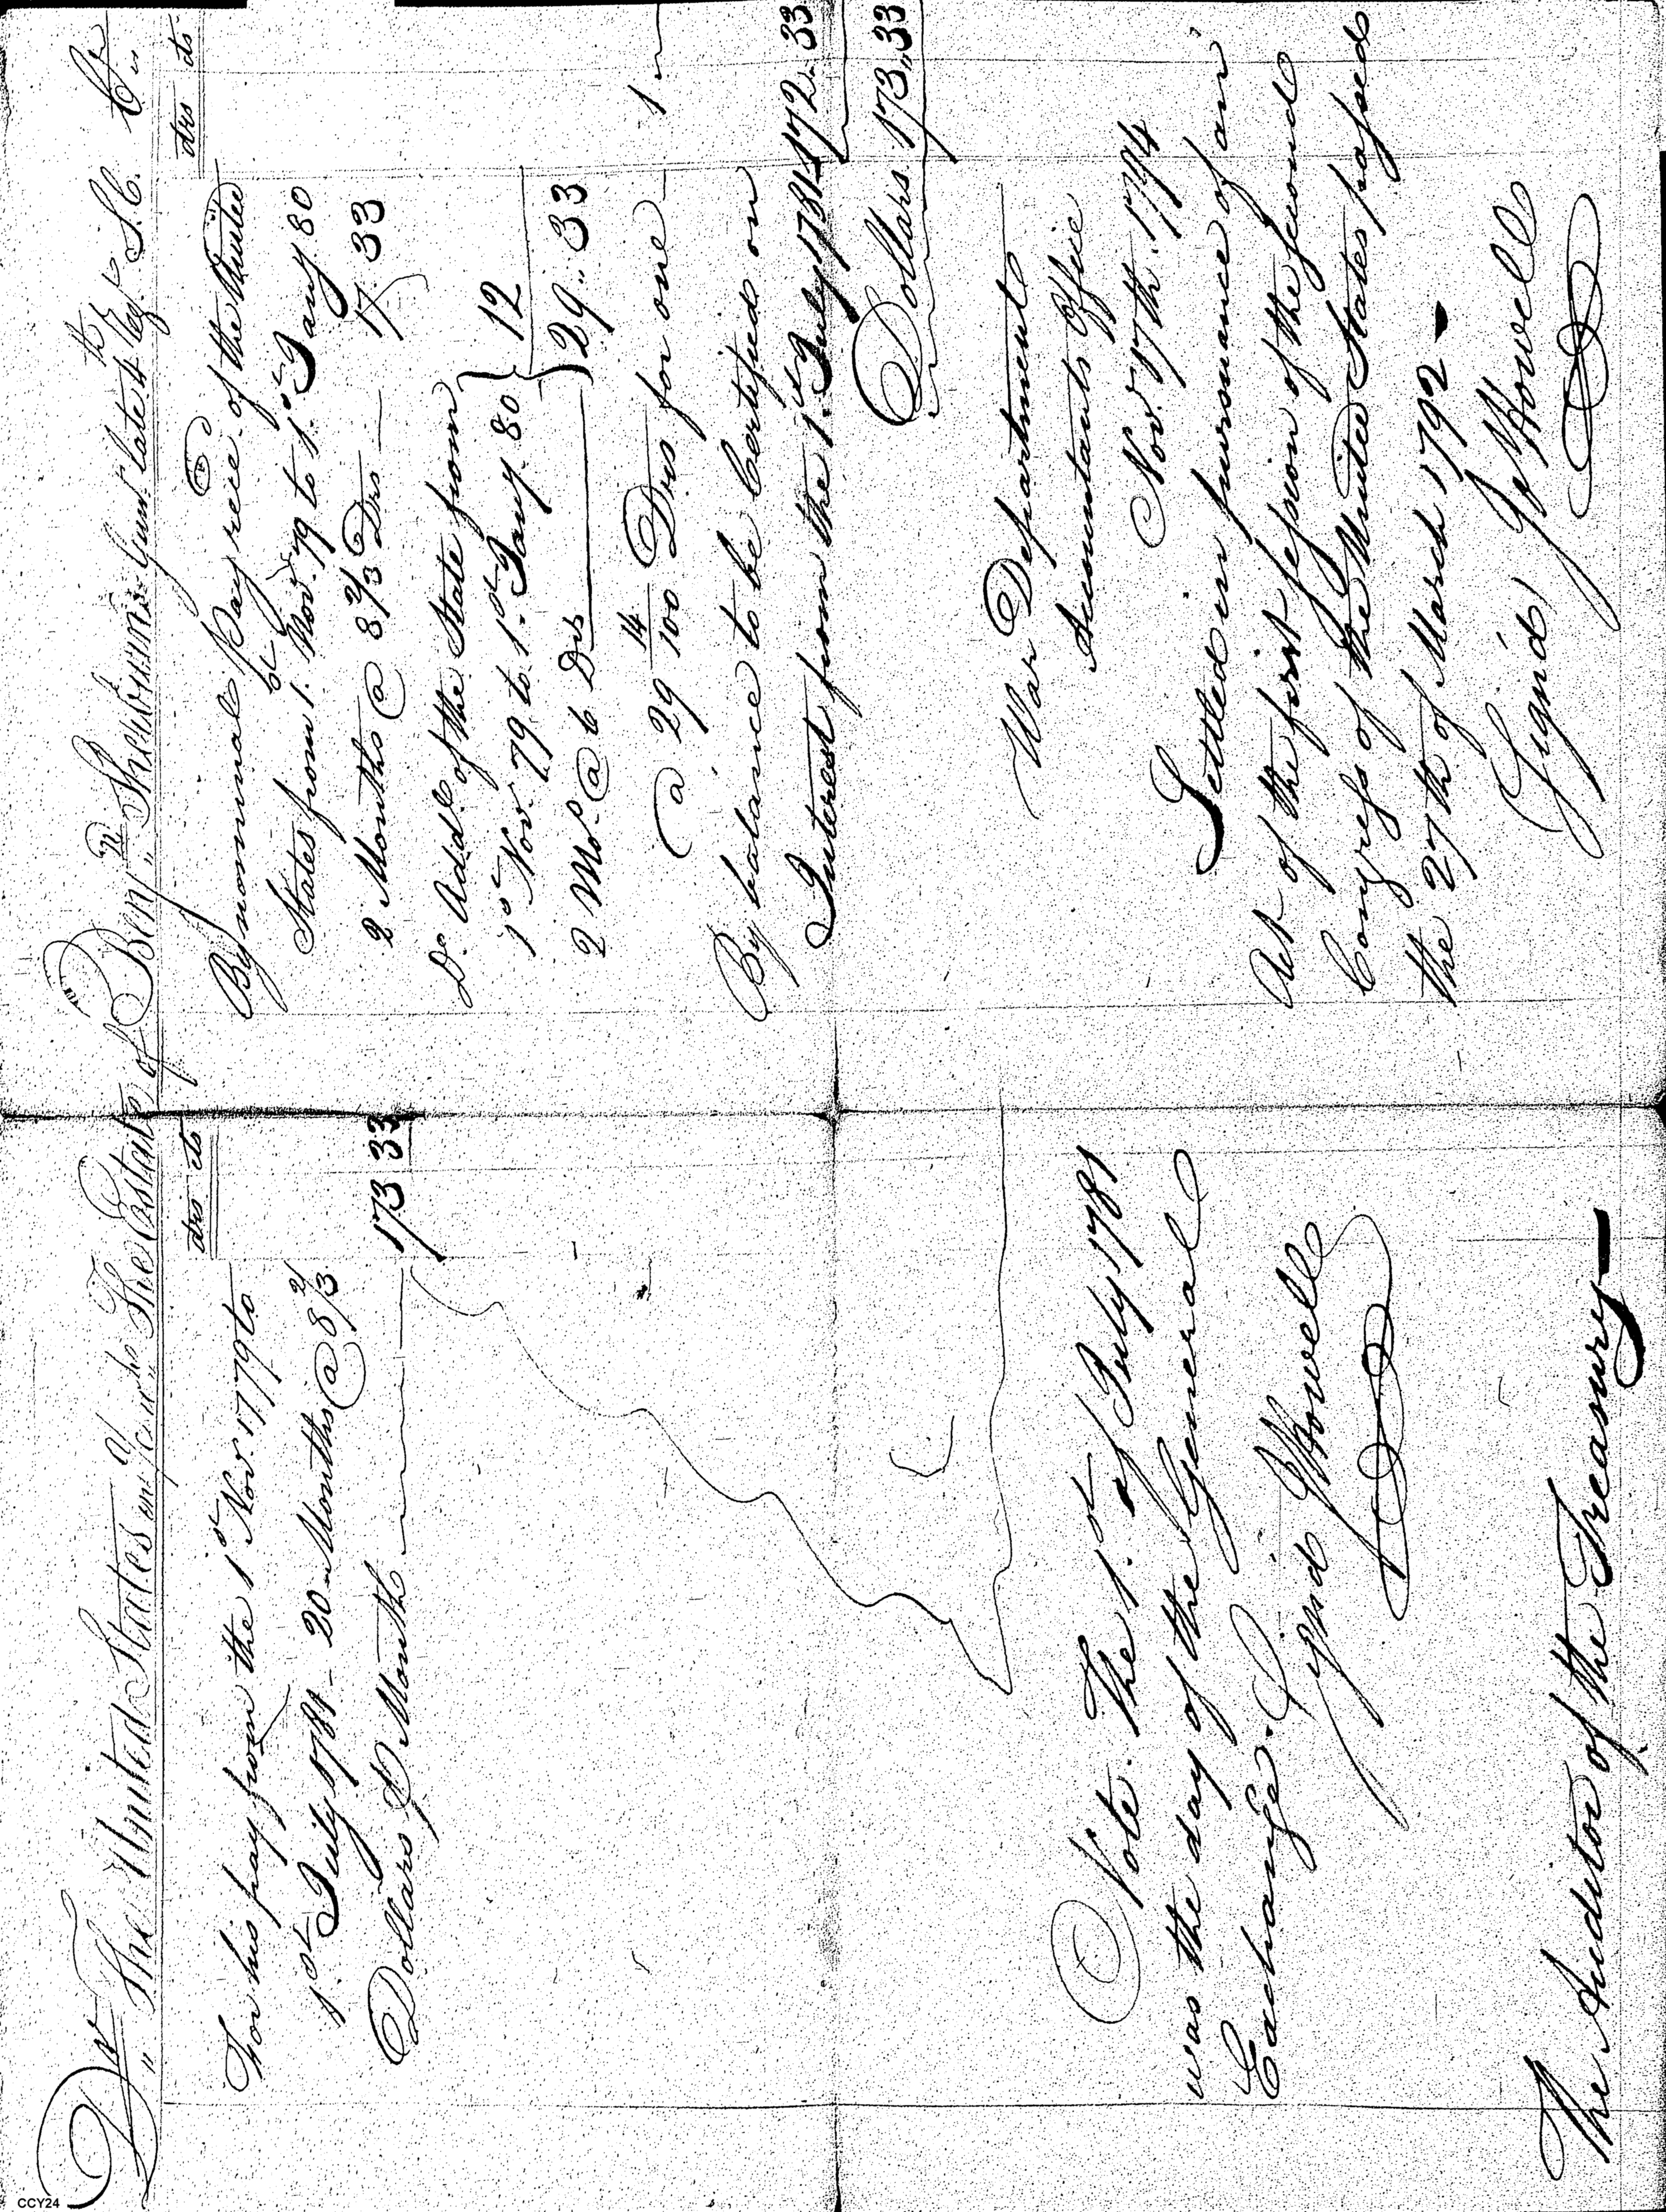 Dr The United States in acct wth The Estate of Benjn Sherburnes Gunr late 4th regt S.C. Cr
drs cts
For his pay from the 1st Nov. 1779 to
1st July 1781 - 20 Months @ 8 2/3
Dollars P Month 173 33
Note. The 1st of July 1781
was the day of the General
Exchange.
Signd J Howell
The Auditor of the Treasury
drs cts
By nominal Pay recd of the United
States from 1st Nov. 79 to 1st Jany 80
2 Months @ 8 2/3 Drs 17 33
Do Addl of the State from
1st Nov. 79 to 1st Jany. 80 } 12
2 Mos @ 6 Drs } 29.. 33
@ 29 14/100 Drs for one 1
By balance to be Certified on
Interest from the 1st July 1781 172.. 33
Dollars 173,, 33
War Department
Accountants Office
Novr 17th 1794
Settled in pursuance of an
Act of the first session of the second
Congress of the United States passed
the 27th of March 1792 -
Signd J Howell
CCY24